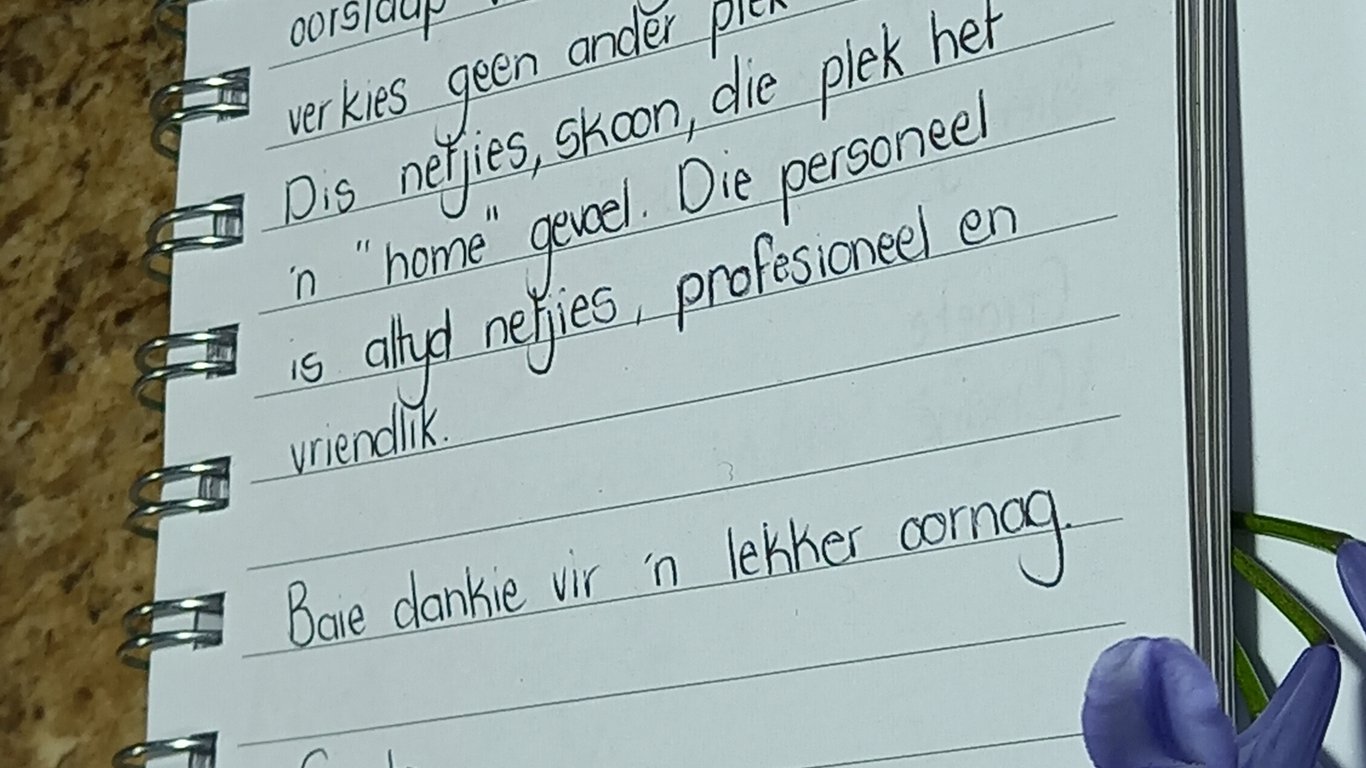 oorslaap
verkies geen ander plek
Dis netjies, skoon, die plek het
'n "home" gevoel. Die personeel
is altyd netjies, profesioneel en
vriendlik.
Baie dankie vir 'n lekker oornag.